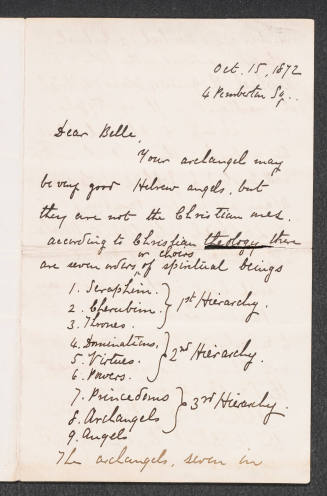 Oct. 15, 1872
4 Pemberton Sq..
Dear Belle,
Your archangel may
be very good Hebrew angels, but
they are not the Christian ones.
according to Christian theology there
or choirs
are seven orders of spiritual beings
1. Seraphim.
2. Cherubim. 1st Hierarchy.
3. Thrones.
4. Dominations.
5. Virtues. 2nd Hierarchy.
6. Powers.
7. Princedoms
8. Archangels 3rd Hierarchy.
9. Angels
The archangels, seven in